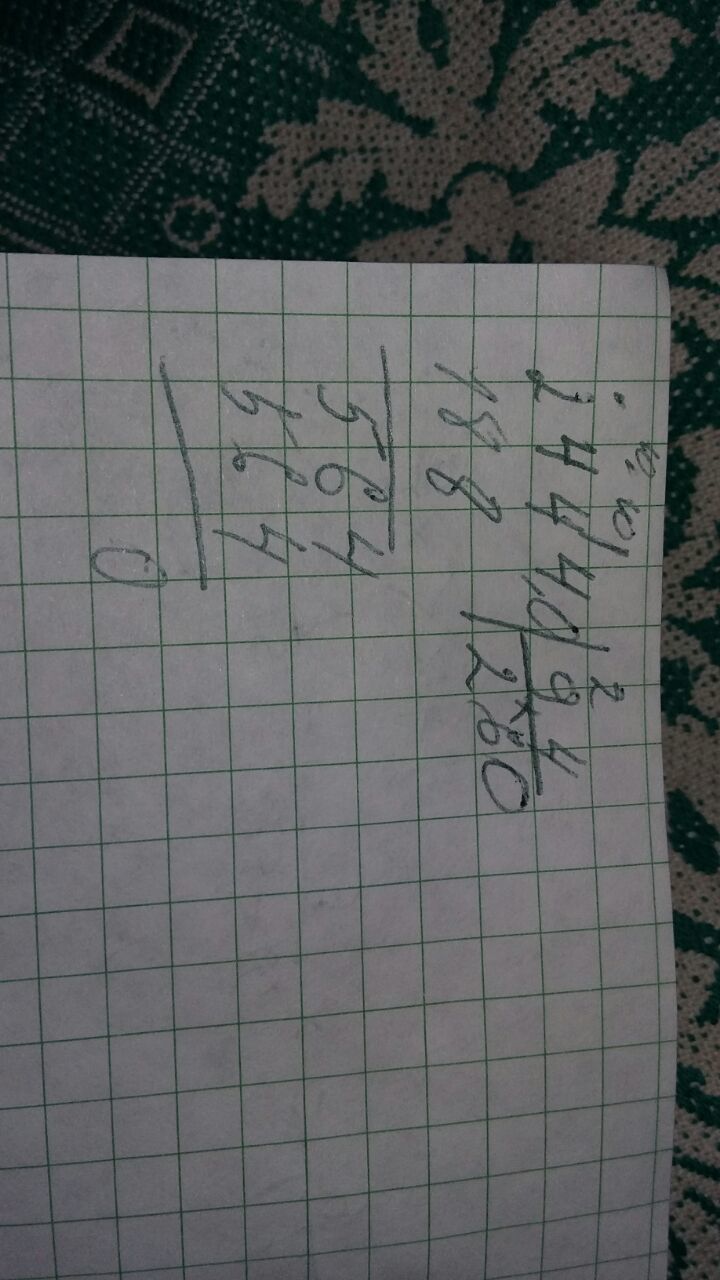 2
24440|94
188 |260
564
564
0